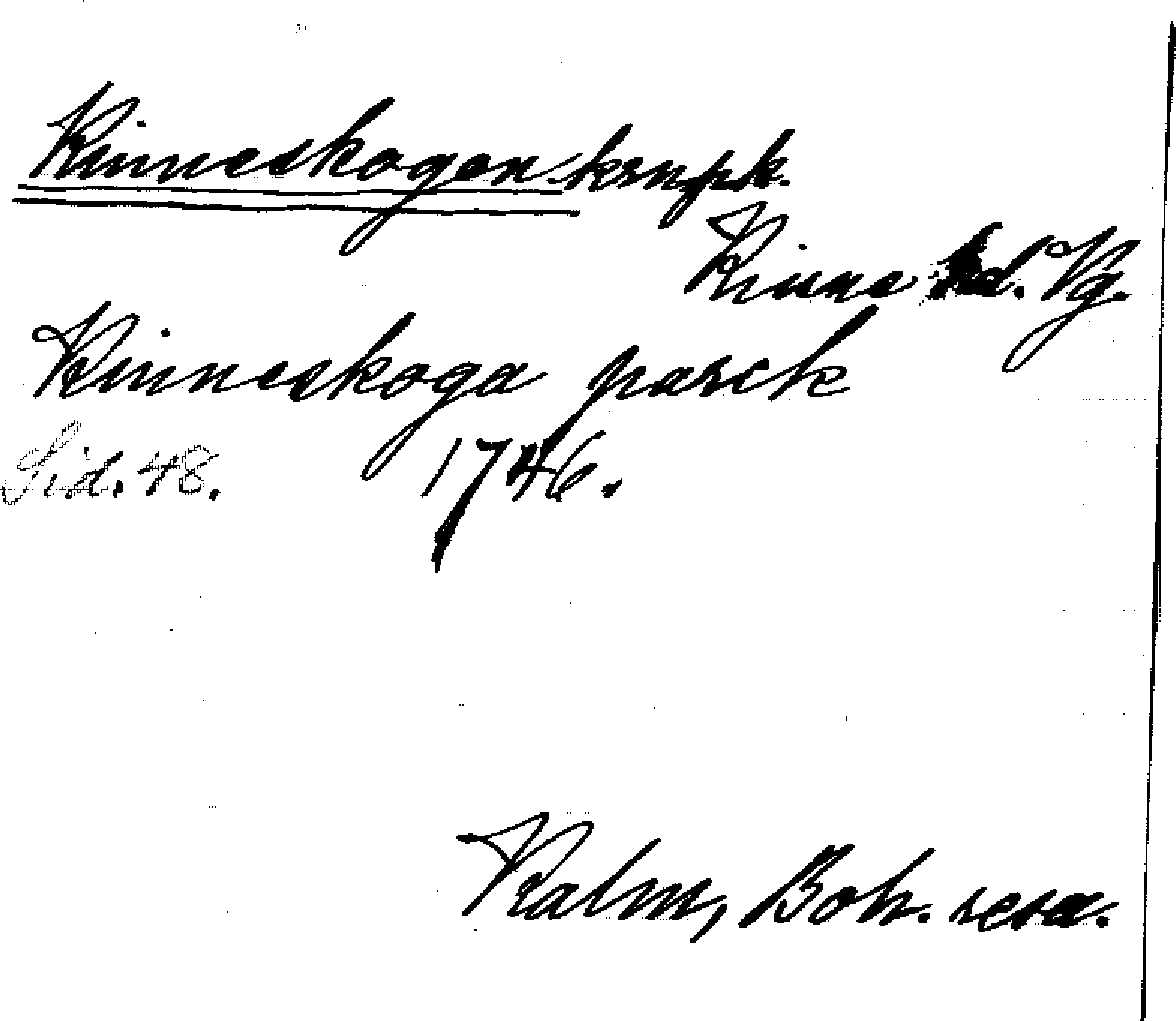 Kinneskogen krnpk.
Kinne hd. Vg.
Kinneskoga parck
Sid. 48. 1746.
Kalm, Boh. resa.